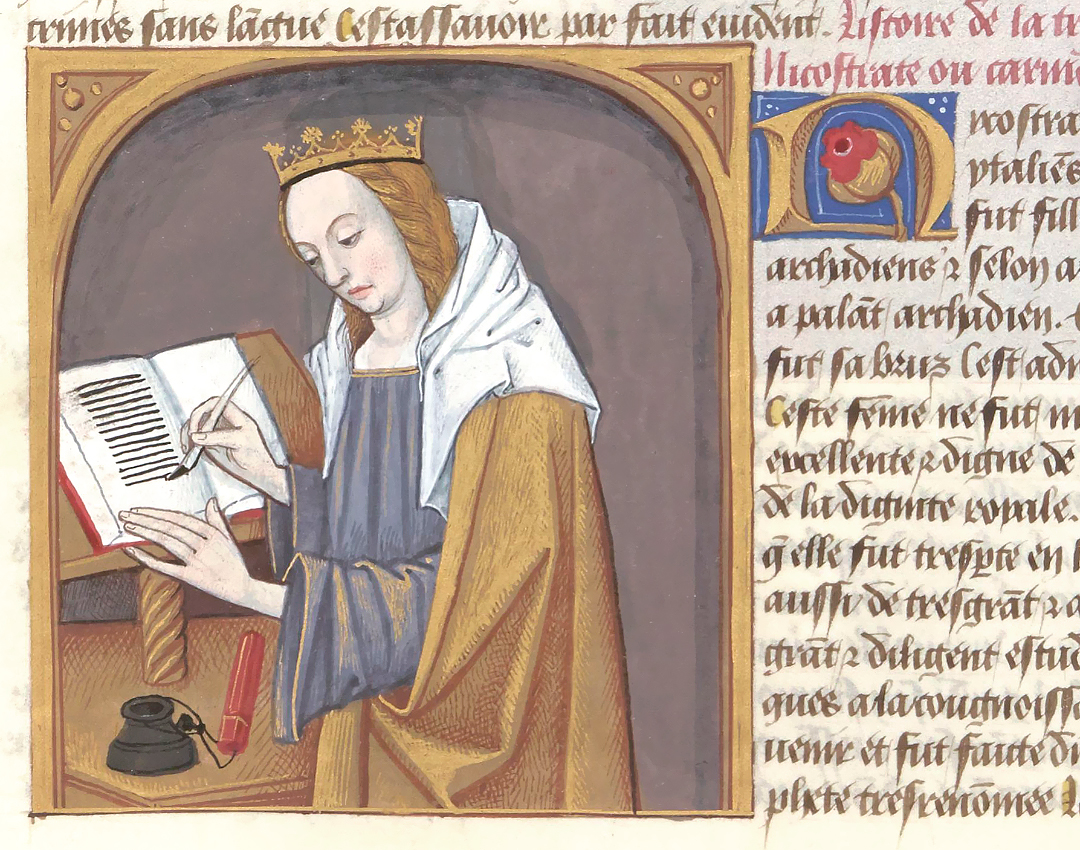 trinēs sans lāgue Cestassavoir par fait euident. Listoire de la tr
Nicostrate ou carm
Nicostra
ytaliēs
fut fill
archadiens ⁊ selon a
a palāt archadien.
fut sa bruz Cest adi
Ceste fēme ne fut m
excellente ⁊ digne de
de la dignite royale.
q̄ elle fut tresp̱te en l
aussi de tresgrāt ⁊ a
grāt ⁊ diligent estud
ques a la cougnoissa
uenir et fut faicte di
phete tresrenōmee